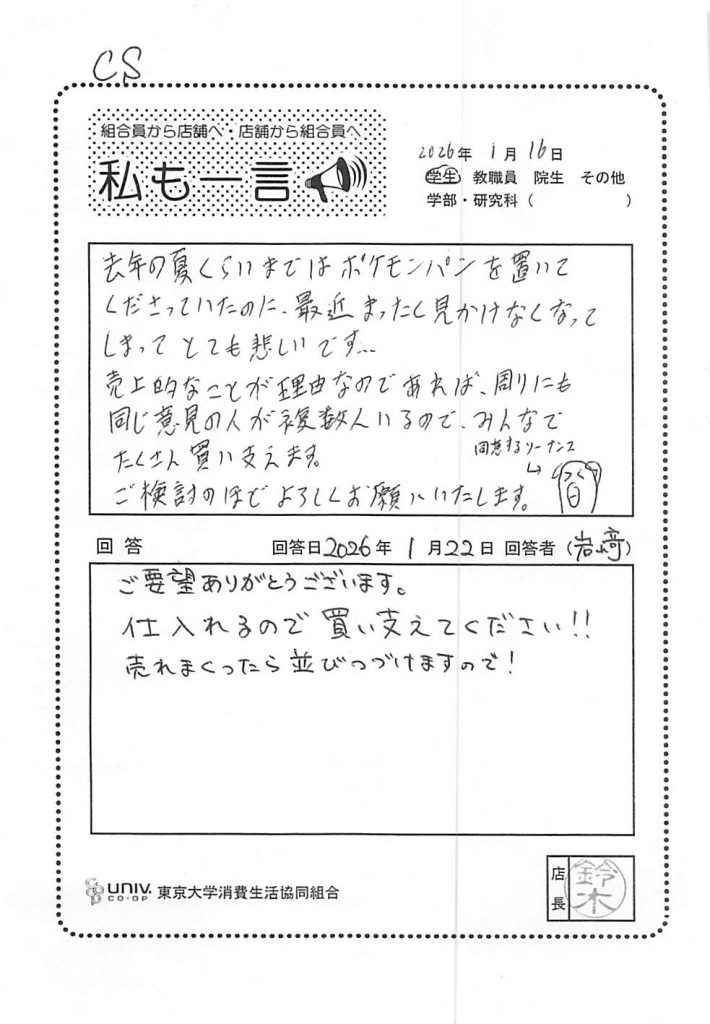 CS
組合員から店舗へ・店舗から組合員へ
私も一言
2026年 1月 16日
学生 教職員 院生 その他
学部・研究科( )
去年の夏くらいまではポケモンパンを置いて
くださっていたのに、最近まったく見かけなくなって
しまってとても悲しいです…
売上的なことが理由なのであれば、周りにも
同じ意見の人が複数人いるので、みんなで
たくさん買い支えます。
同意するソーナンス
ご検討のほどよろしくお願いいたします。
回答 回答日2026年 1月22日 回答者(岩﨑)
ご要望ありがとうございます。
仕入れるので買い支えてください!!
売れまくったら並びつづけますので!
店長 鈴木
coop UNIV. CO-OP 東京大学消費生活協同組合